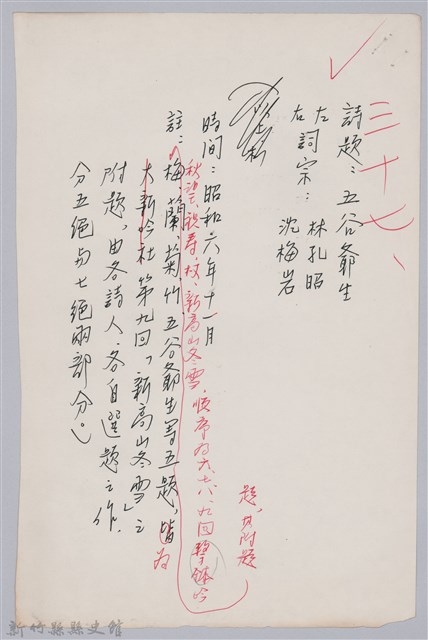 三十七、
詩題：五谷爺生
左詞宗：林孔昭
右　　　沈梅岩
時間：昭和六年十一月
秋望、祝壽、
新高山冬雪，順序為六、七、八、九回擊鉢吟
題，其附題
註：梅、蘭、菊、竹、五谷爺生等五題，皆為
大新吟社第九回「新高山冬雪」之
附題，由各詩人、各自選題之作，
分五絕與七絕兩部分。
新竹縣縣史館